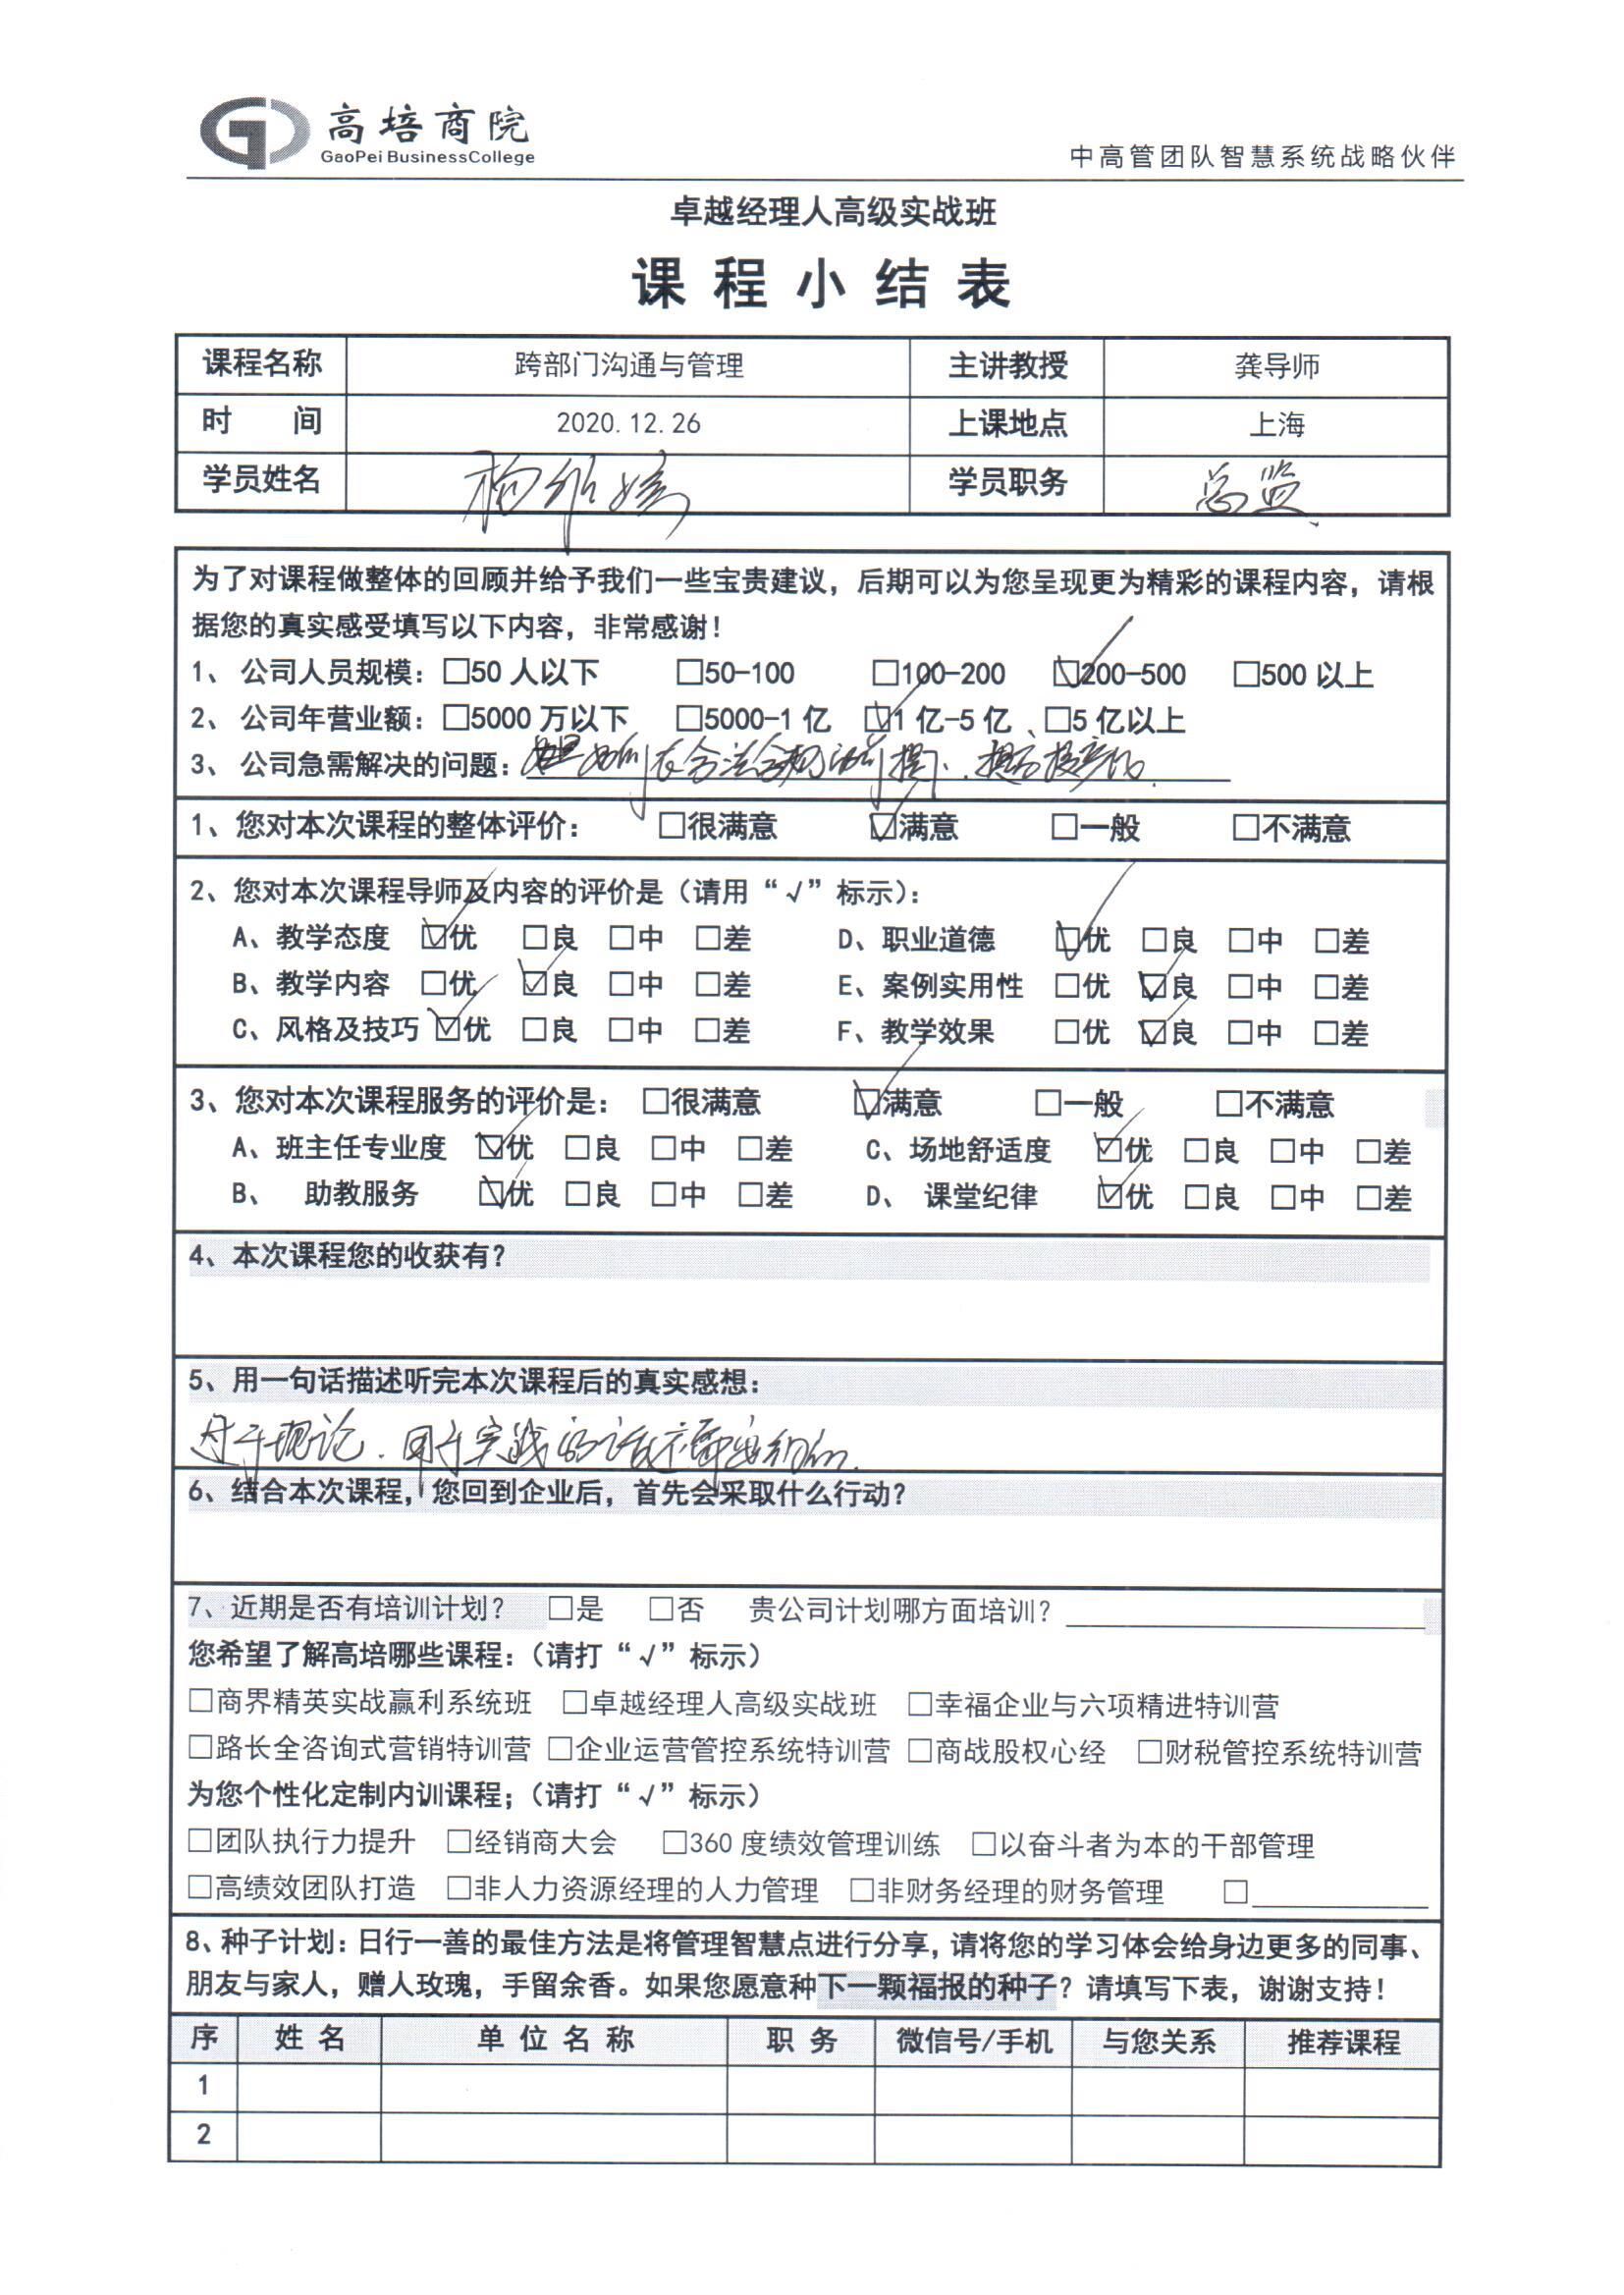 高培商院
GaoPei BusinessCollege
中高管团队智慧系统战略伙伴
卓越经理人高级实战班
课程小结表
课程名称 跨部门沟通与管理 主讲教授 龚导师
时 间 2020.12.26 上课地点 上海
学员姓名 学员职务 总监
为了对课程做整体的回顾并给予我们一些宝贵建议，后期可以为您呈现更为精彩的课程内容，请根
据您的真实感受填写以下内容，非常感谢！
1、 公司人员规模：□50 人以下 □50-100 □100-200 ☑200-500 □500 以上
2、 公司年营业额：□5000 万以下 □5000-1 亿 ☑1 亿-5 亿 、□5 亿以上
3、 公司急需解决的问题： 如何在合法合规的前提下.提高
1、您对本次课程的整体评价： □很满意 ☑满意 □一般 □不满意
2、您对本次课程导师及内容的评价是（请用“√”标示）：
A、教学态度 ☑优 □良 □中 □差 D、职业道德 ☑优 □良 □中 □差
B、教学内容 □优 ☑良 □中 □差 E、案例实用性 □优 ☑良 □中 □差
C、风格及技巧 ☑优 □良 □中 □差 F、教学效果 □优 ☑良 □中 □差
3、您对本次课程服务的评价是： □很满意 ☑满意 □一般 □不满意
A、班主任专业度 ☑优 □良 □中 □差 C、场地舒适度 ☑优 □良 □中 □差
B、 助教服务 ☑优 □良 □中 □差 D、 课堂纪律 ☑优 □良 □中 □差
4、本次课程您的收获有？
5、用一句话描述听完本次课程后的真实感想：
过于理论.用于实践的话还需要
6、结合本次课程，您回到企业后，首先会采取什么行动？
7、近期是否有培训计划？ □是 □否 贵公司计划哪方面培训？
您希望了解高培哪些课程：（请打“√”标示）
□商界精英实战赢利系统班 □卓越经理人高级实战班 □幸福企业与六项精进特训营
□路长全咨询式营销特训营 □企业运营管控系统特训营 □商战股权心经 □财税管控系统特训营
为您个性化定制内训课程；（请打“√”标示）
□团队执行力提升 □经销商大会 □360 度绩效管理训练 □以奋斗者为本的干部管理
□高绩效团队打造 □非人力资源经理的人力管理 □非财务经理的财务管理 □
8、种子计划：日行一善的最佳方法是将管理智慧点进行分享，请将您的学习体会给身边更多的同事、
朋友与家人，赠人玫瑰，手留余香。如果您愿意种下一颗福报的种子？请填写下表，谢谢支持！
序 姓 名 单 位 名 称 职 务 微信号/手机 与您关系 推荐课程
1
2